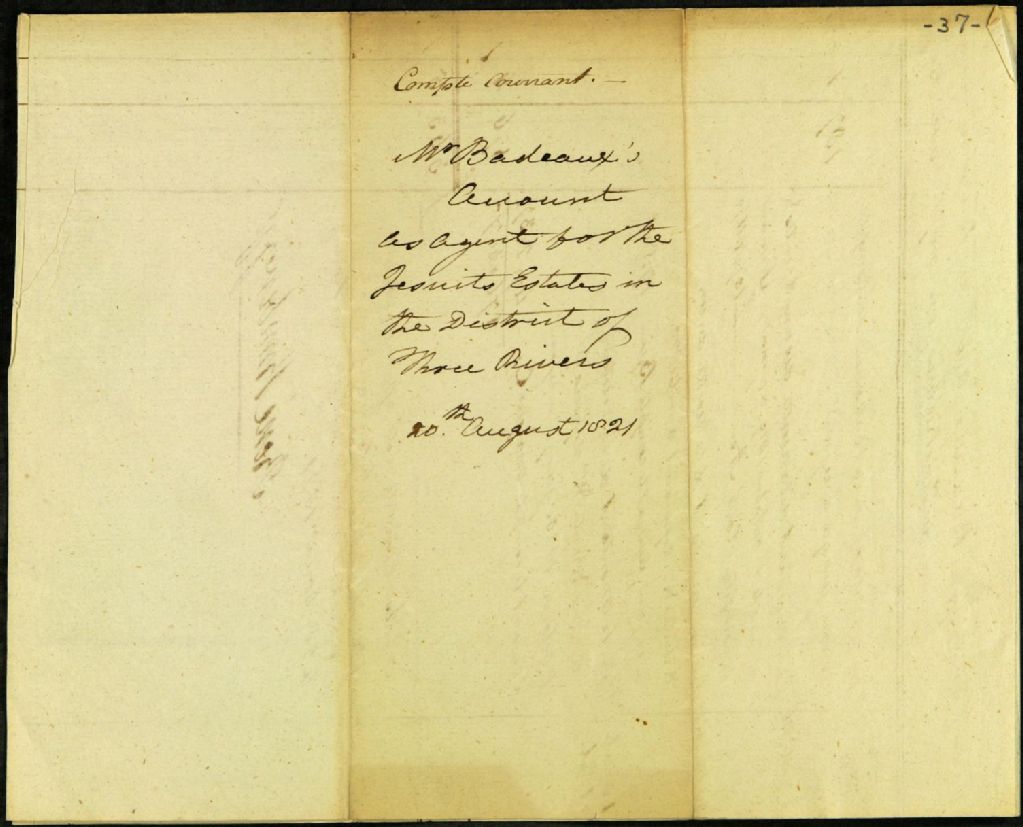 -37-
Compte Courrant. —
Mr Badeaux's
Account
as agent for the
Jesuits Estates in
the District of
Three Rivers
20.th August 1821